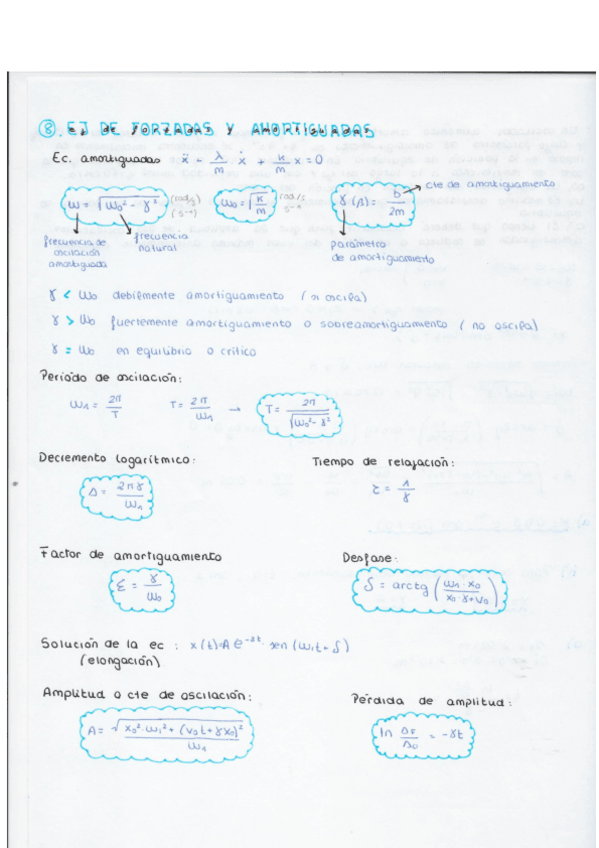 ⑧. EJ DE FORZADAS Y AMORTIGUADAS
Ec. amortiguadas ẍ - λ/m ẋ + k/m x = 0
ω = √(ω₀² - γ²) (rad/s) (s⁻¹) ω₀ = √(k/m) rad/s s⁻¹ γ(β) = b/2m cte de amortiguamiento
frecuencia de oscilación amortiguada
frecuencia natural
parámetro de amortiguamiento
γ < ω₀ debilmente amortiguamiento (si oscila)
γ > ω₀ fuertemente amortiguamiento o sobreamortiguamiento (no oscila)
γ = ω₀ en equilibrio o crítico
Período de oscilación:
ω₁ = 2π/T T = 2π/ω₁ → T = 2π/√(ω₀² - γ²)
Decremento logarítmico: Tiempo de relajación:
Δ = 2πγ/ω₁ τ = 1/γ
Factor de amortiguamiento Desfase:
ε = γ/ω₀ δ = arctg (ω₁·x₀/x₀·γ+v₀)
Solución de la ec : x(t)=A e^-γt · sen (ω₁t + δ)
(elongación)
Amplitud o cte de oscilación: Pérdida de amplitud:
A = √(x₀²·ω₁² + (v₀t + γx₀)²)/ω₁ ln = -γt